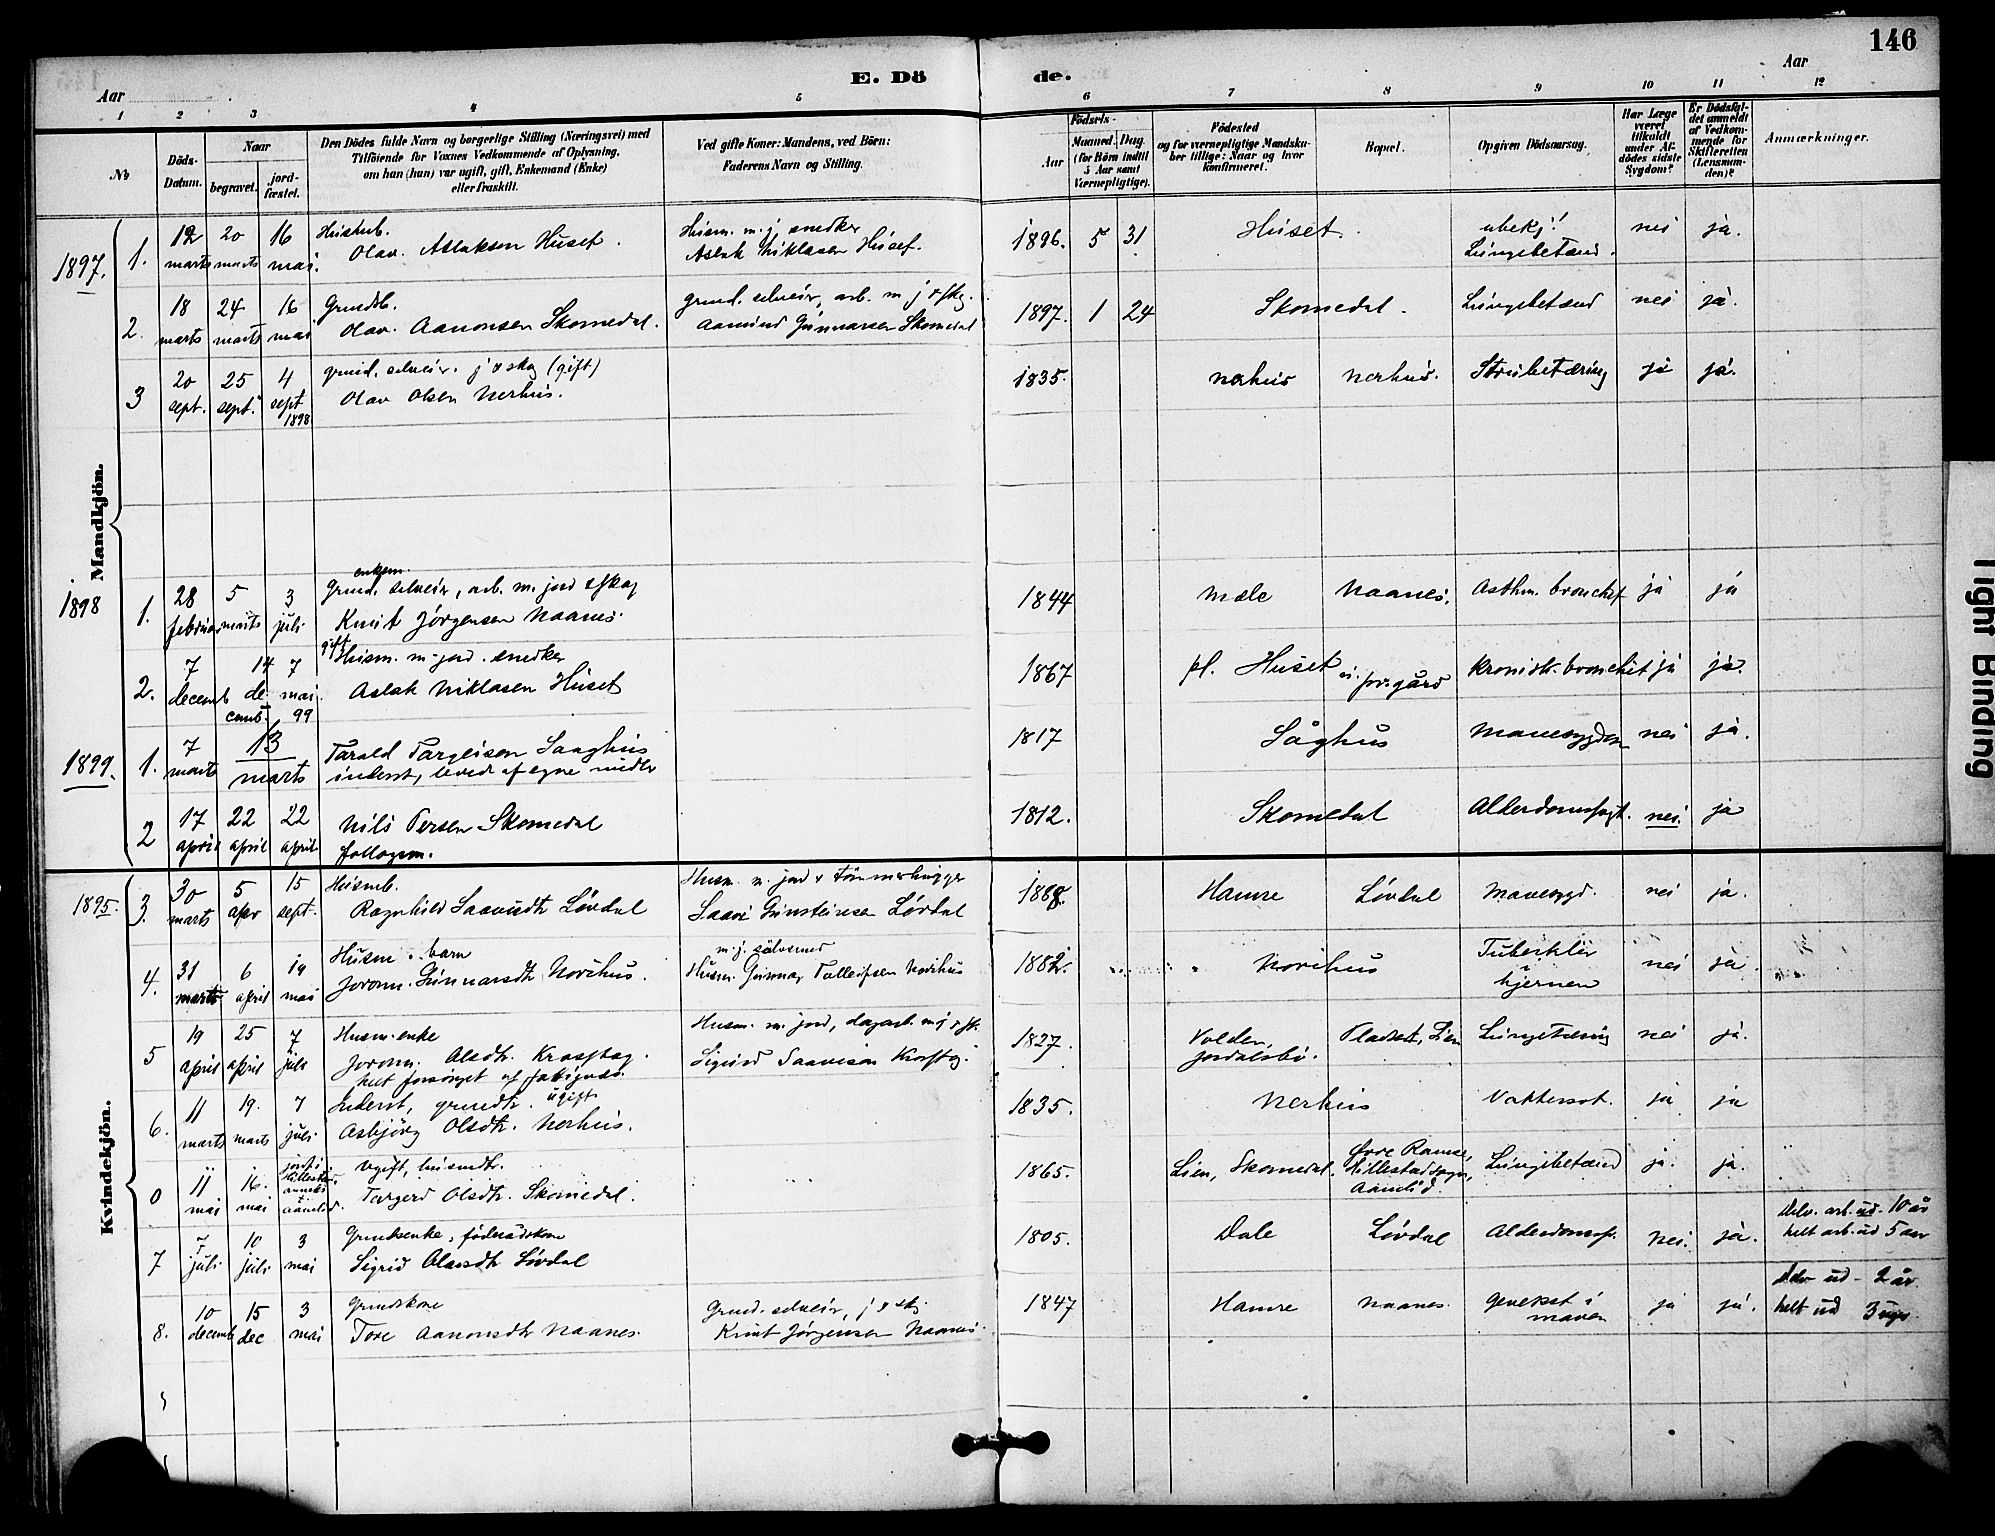 146
E. Dö de.
Aar
Aar
1 2 3 4 5 6 7 8 9 10 11 12
No
Döds-
Datum.
Naar
begravet.
jord-
fæstet.
Den Dödes fulde Navn og borgerlige Stilling (Næringsvei) med
Tilföiende for Voxnes Vedkommende af Oplysning,
om han (hun) var ugift, gift, Enkemand (Enke)
eller fraskilt.
Ved gifte Koner: Mandens, ved Börn:
Faderens Navn og Stilling.
Födsels-
Aar
Maaned. Dag.
(for Börn indtil
5 Aar samt
Værnepligtige).
Födested
og for værnepligtige Mandska-
ber tillige: Naar og hvor
konfirmeret.
Bopæl.
Opgiven Dödsaarsag.
Har Læge
været
tilkaldt
under Af-
dödes sidste
Sygdom?
Er Dödsfal-
det anmeldt
af Vedkom-
mende for
Skifteretten
(Lensman-
den)?
Anmærkninger.
Mandkjön.
1897.
1. 12 marts 20 marts 16 mai.
Olav. Aslaksen Huset.
Husm. m. j, snedker
Aslak Niklasen Huset.
1896. 5 31 Huset. Lungebetænd. nei ja.
2. 18 marts 24 marts 16 mai
Olav. Aanonsen Skomedal.
Aamund Gunnarsen Skomedal
1897. 1 24 Skomedal. Lungebetænd nei ja.
3 20 sept. 25 sept. 4 sept 1898
grund. selveier. j & skog (gift)
Olav Olsen Nerhus.
1835. Nerhus Nerhus. Strubetæring ja ja.
1898
1. 28 februar 5 marts 3 juli
enkem.
Grund. selveier, arb. m. jord & skog
Knut Jörgensen Naanes.
1844 Mæle Naanes. Asthm. bronchit ja ja
2. 7 decemb 14 decemb. 7 mai 99
gift
Husm. m. jord. snedker
Aslak Niklasen Huset
1867 pl. Huset kronisk. bronchit ja ja.
1899.
1. 7 marts 13 marts
Tarald Targeisen Saaghus
inderst, leved af egne midler
1817 Såghus Mavesygdom nei ja.
2 17 april 22 april 22 april
Nils Persen Skomedal
1812. Skomedal Alderdomssvagt. nei. ja
Kvindekjön.
1895.
3. 30 marts 5 apr 15 sept.
Husmb.
Ragnhild Saavesdtr Lövdal
Husm. m. jord & tömmerhugger
Saave Gunsteinsen Lövdal
1888. Hamre Lövdal Mavesygd. nei ja.
4. 31 marts 6 april 19 mai
Husm. barn
Joronn. Gunnarsdtr Norihus.
Husm. Gunnar Talleifsen Norihus
1882. Norihus Tuberkler
i
hjernen
nei ja.
5 19 april 25 april 7 juli
Husm. enke
Joronn. Olsdtr.
helt forsörget af fattigvæs.
Sigurd Saavesen
1827. Valden,
Pladset, Lien Lungetæring nei ja.
6. 11 marts 19. marts 7 juli
Inderst, ugift
Asbjörg Olsdtr. Nerhus.
1835. Nerhus Vattersot. ja ja
0 11 mai 16. mai
Ugift, husmdtr.
Torgerd Olsdtr. Skomedal.
1865. Lien, Skomedal. Övre Ramse,
Hillestadsogn,
Aamlid. Lungebetænd ja. ja.
7 7 juli 10 juli 3 mai
Grundenke, föderådskone
Sigrid Olavsdtr Lövdal
1805. Dale Lövdal Alderdomssv. nei. ja.
Delv. arb. ud. 10 år
helt arb. ud 5 aar
8. 10 decemb 15 dec 3 mai
Grundkone
Tore Aanonsdtr Naanes.
Grund. selveier, j & skj
Knut Jörgensen Naanes.
1847 Hamre Naanes. Genekset i
maven
ja ja.
Delv ud 2 år
helt ud 3 uger
Tight Binding